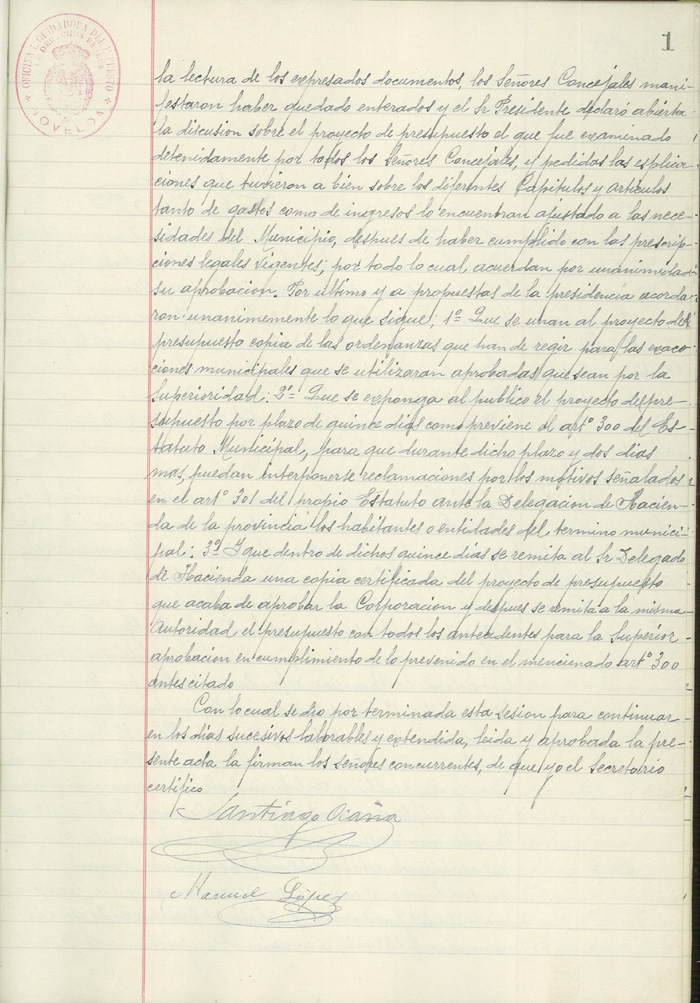 1
NOVELDA
la lectura de los expresados documentos, los Señores Concejales mani-
festaron haber quedado enterados y el Sr Presidente declaró abierta
la discusion sobre el proyecto de presupuesto el que fue examinado
detenidamente por todos los Señores Concejales, y pedidas las esplica-
ciones que tuvieron a bien sobre los diferentes Capitulos y articulos
tanto de gastos como de ingresos lo encuentran ajustado a las nece-
sidades del Municipio, despues de haber cumplido con las prescrip-
ciones legales vigentes; por todo lo cual acuerdan por unanimidad
su aprobacion. Por ultimo y a propuestas de la presidencia acorda-
ron unanimemente lo que sigue; 1º Que se unan al proyecto de
presupuesto copia de las ordenanzas que han de regir para las exac-
ciones municipales que se utilizaran aprobadas que sean por la
Superioridad: 2º= Que se exponga al publico el proyecto del pre-
supuesto por plazo de quince dias como previene el artº 300 del Es-
tatuto Municipal, para que durante dicho plazo y dos dias
mas, puedan interponerse reclamaciones por los motivos señalados
en el artº 301 del propio Estatuto ante la Delegacion de Hacien-
da de la provincia los habitantes o entidades del termino munici-
pal: 3º Y que dentro de dichos quince dias se remita al Sr Delegado
de Hacienda una copia certificada del proyecto de presupuesto
que acaba de aprobar la Corporacion y despues se remita a la misma
Autoridad el presupuesto con todos los antecedentes para la Superior
aprobacion en cumplimiento de lo prevenido en el mencionado artº 300
antes citado
Con lo cual se dio por terminada esta sesion para continuar
en los dias sucesivos laborables y extendida, leida y aprobada la pre-
sente acta la firman los señores concurrentes, de que yo el Secretario
certifico
Santiago Ocaña
Manuel López